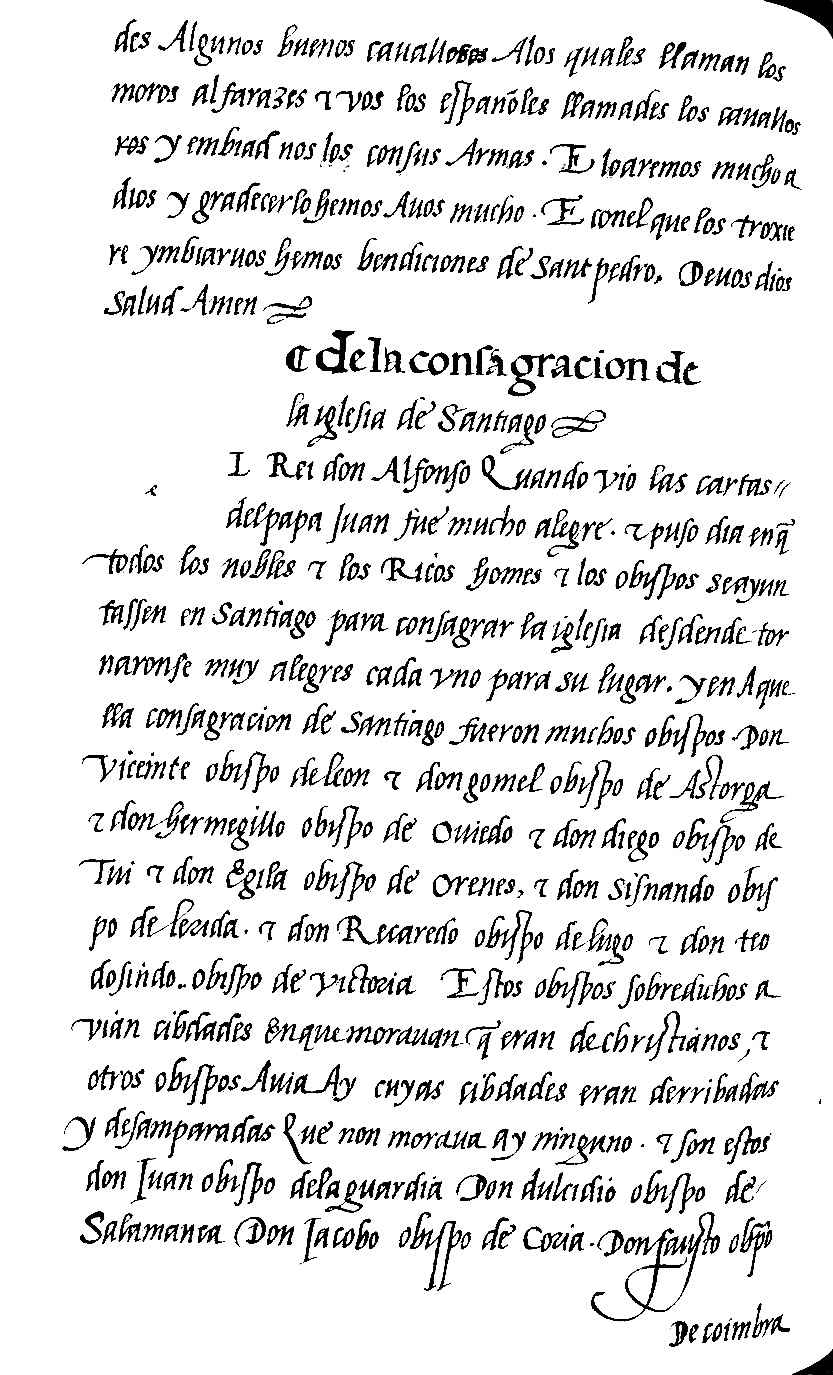 des Algunos buenos cauallosos Alos quales llaman los
moros alfarazes τ vos los españoles llamades los cauallos
ros y embiad nos los consus Armas. E loaremos mucho a
dios y gradecerlo hemos Auos mucho. E conel que los troxie
re ymbiaruos hemos bendiciones de Sant pedro. Deuos dios
Salud Amen
¶ de la consagracion de
la iglesia de Santiago
e
L Rei don Alfonso Quando vio las cartas
del papa Juan fue mucho alegre. τ puso dia enq̃
todos los nobles τ los Ricos homes τ los obispos se ayun
tassen en Santiago para consagrar la iglesia desdende tor
naronse muy alegres cada vno para su lugar. y en Aque
lla consagracion de Santiago fueron muchos obispos. Don
Viceinte obispo de leon τ don gomel obispo de Astorga
τ don hermegillo obispo de Ouiedo τ don diego obispo de
Tui τ don Egila obispo de Orenes, τ don Sisnando obis
po de lerida. τ don Recaredo obispo de lugo τ don teo
dosindo.. obispo de victoria Estos obispos sobreduhos a
vian cibdades En que morauan q̃ eran de christianos, τ
otros obispos Auia Ay cuyas cibdades eran derribadas
y desamparadas Que non moraua ay ninguno. τ son estos
don Juan obispo dela guardia Don dulcidio obispo de
Salamanca Don Jacobo obispo de Coria. Don fausto obpo
De coimbra